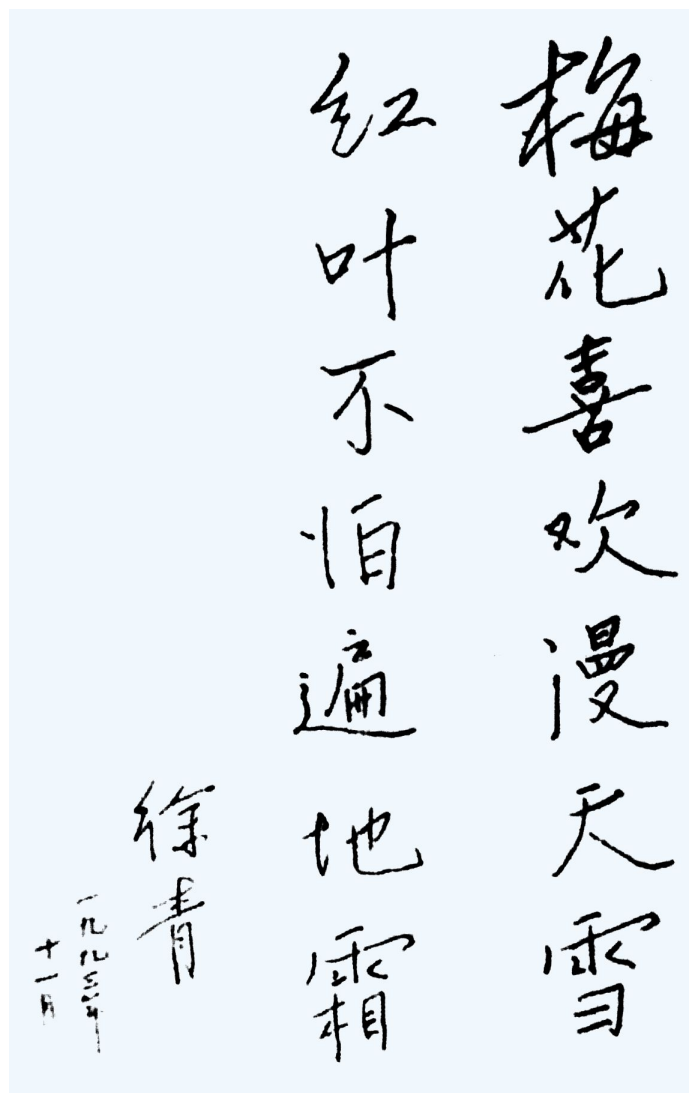 梅花喜欢漫天雪
红叶不怕遍地霜
徐青
一九九三年
十一月